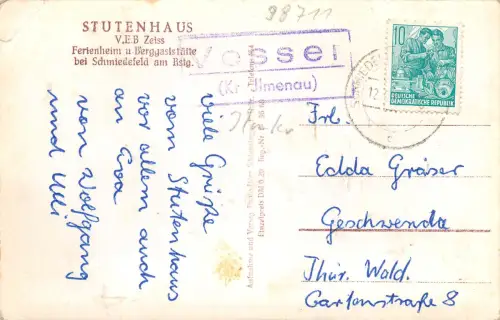 STUTENHAUS
V.E.B Zeiss
Ferienheim u Berggaststätte
bei Schmiedefeld am Rstg.
98711
Vesser
(Kr Ilmenau)
10
DEUTSCHE
DEMOKRATISCHE REPUBLIK
Viele Grüße
vom Stutenhaus
vor allem auch
an Eva
von Wolfgang
und Ulli
Frl.
Edda Gräser
Geschwenda
Thür. Wald.
Gartenstraße 8